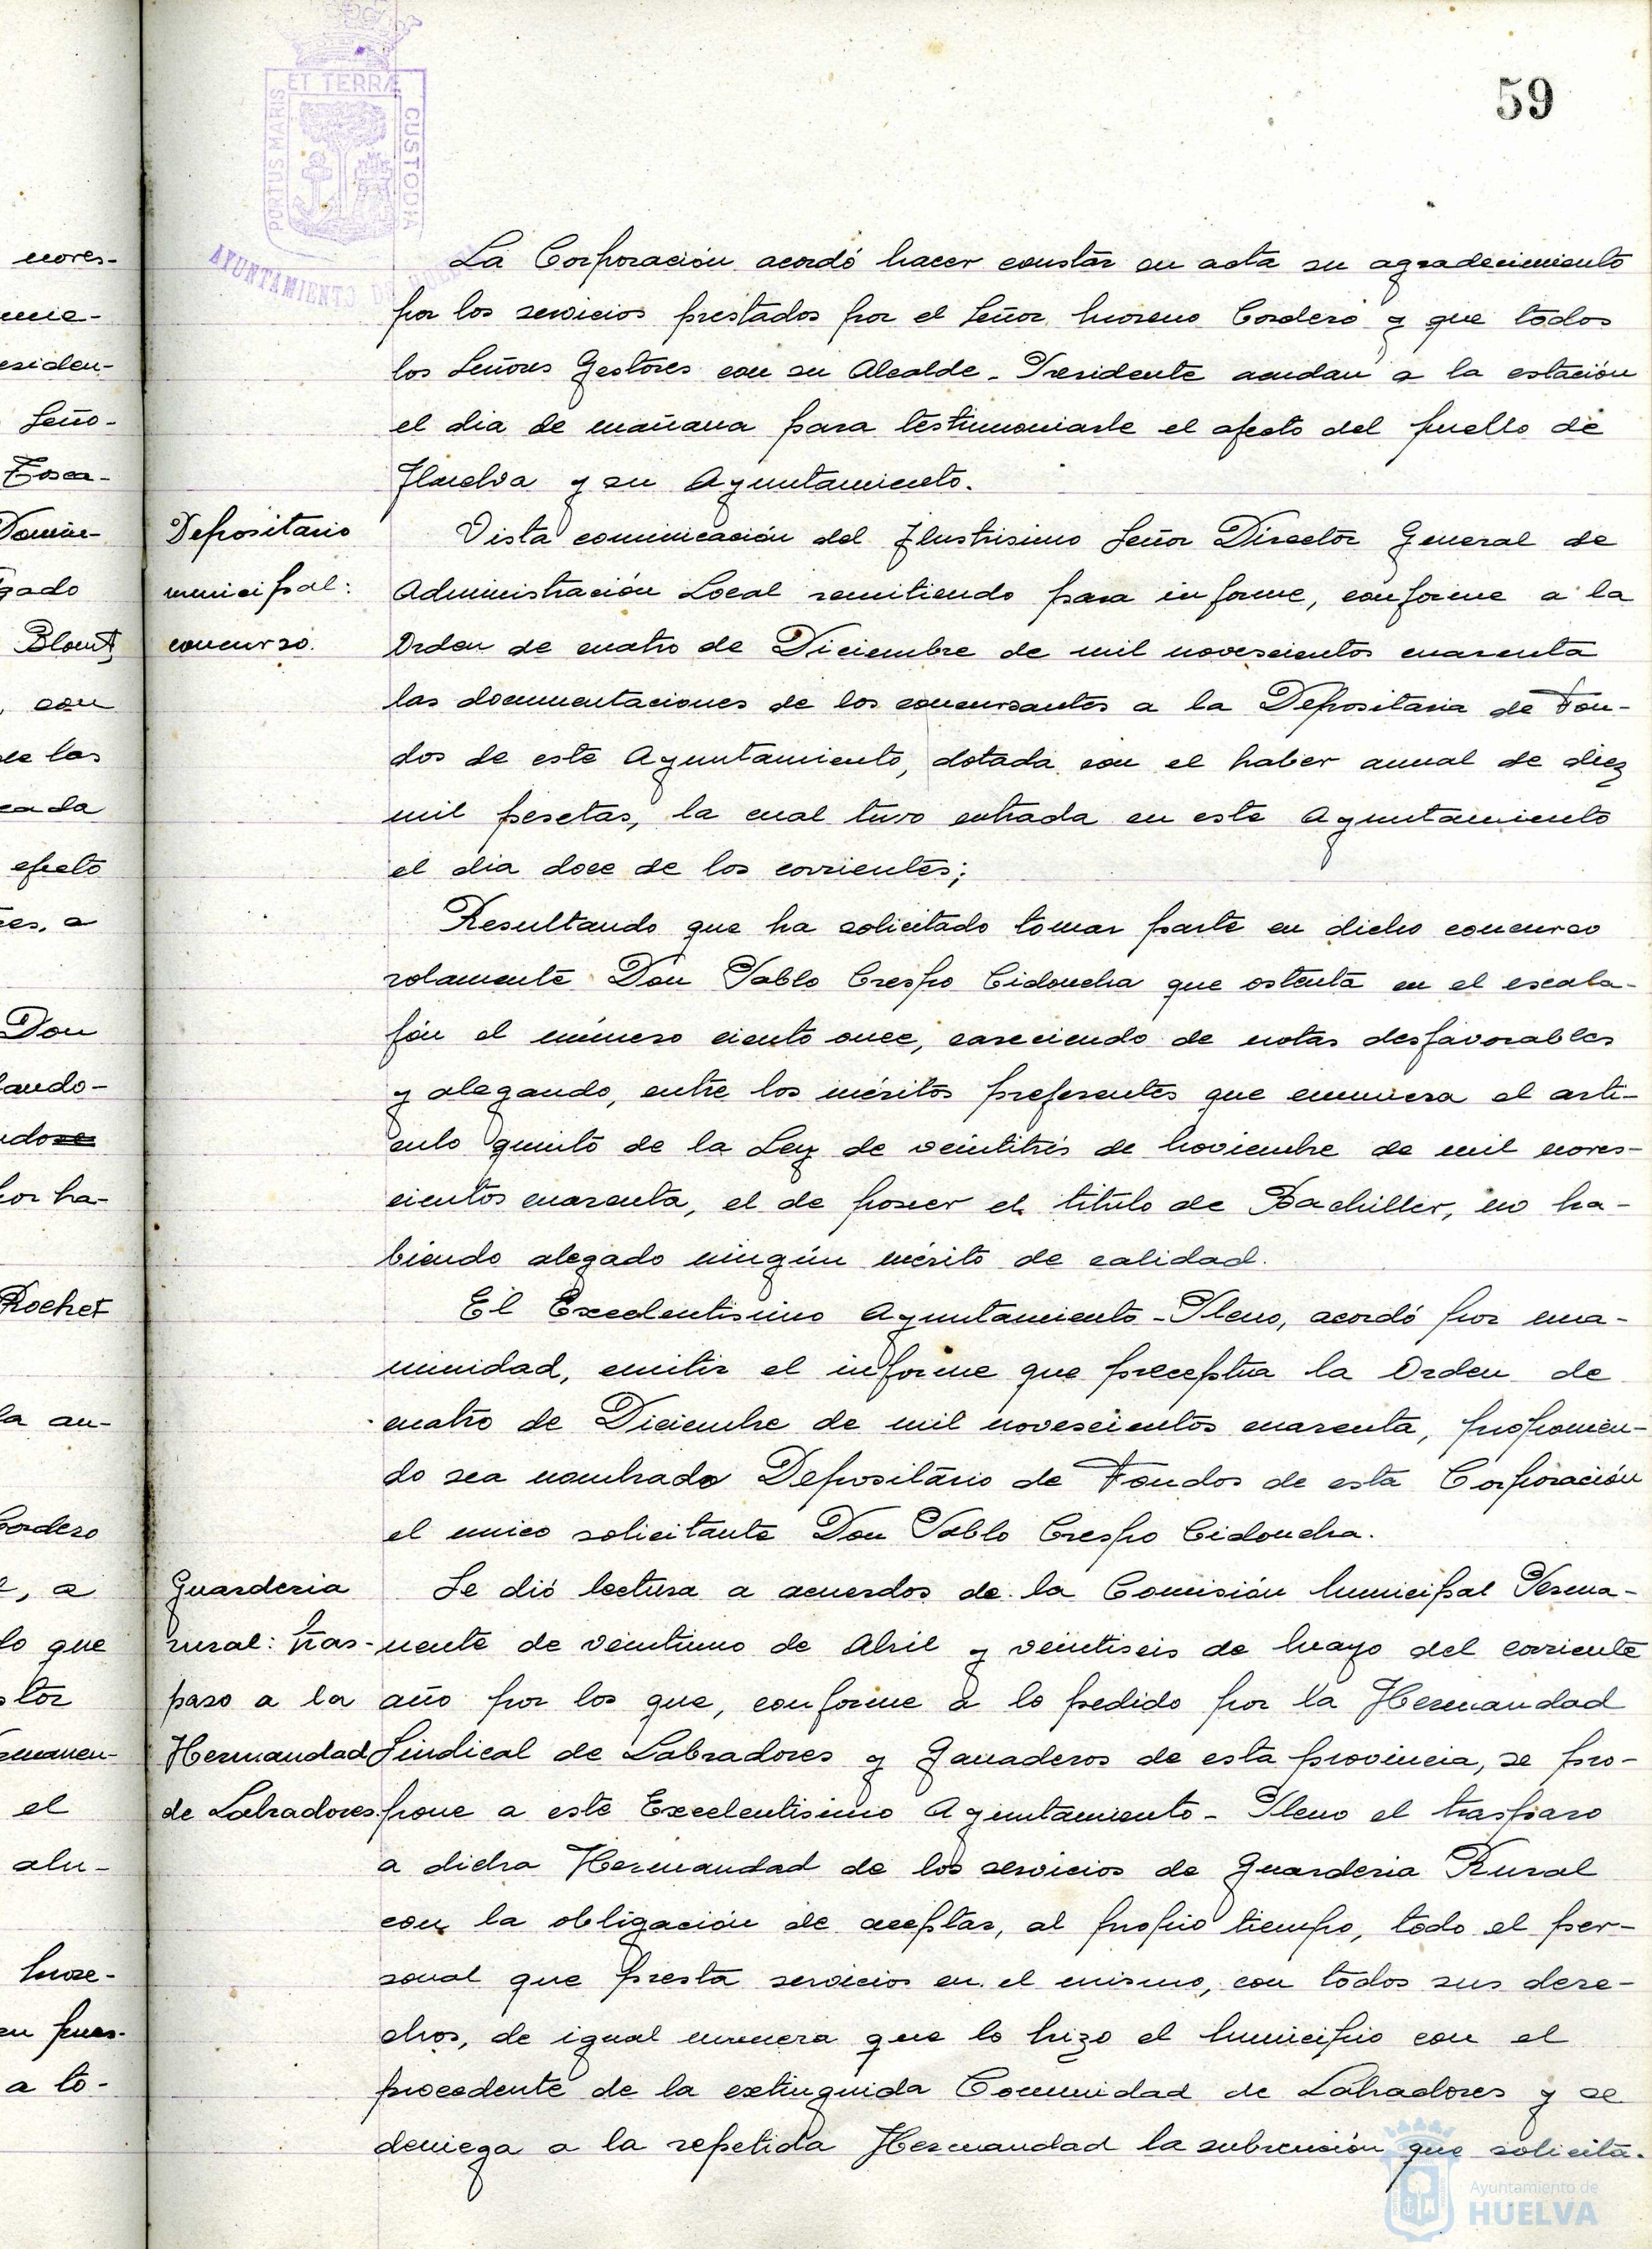 59
ET TERRÆ
PORTUS MARIS
CUSTODIA
AYUNTAMIENTO DE HUELVA
La Corporación acordó hacer constar en acta su agradecimiento
por los servicios prestados por el Señor Moreno Cordero y que todos
los Señores Gestores con su Alcalde-Presidente acudan a la estación
el dia de mañana para testimoniarle el afecto del pueblo de
Huelva y su Ayuntamiento.
Depositario
municipal:
concurso.
Vista comunicación del Ilustrisimo Señor Director General de
Administración Local remitiendo para informe, conforme a la
Orden de cuatro de Diciembre de mil novescientos cuarenta
las documentaciones de los concursantes a la Depositaria de Fon-
dos de este Ayuntamiento, dotada con el haber anual de diez
mil pesetas, la cual tuvo entrada en este Ayuntamiento
el dia doce de los corrientes;
Resultando que ha solicitado tomar parte en dicho concurso
solamente Don Pablo Crespo Cidoncha que ostenta en el escala-
fón el número ciento once, careciendo de notas desfavorables
y alegando, entre los méritos preferentes que enumera el arti-
culo quinto de la Ley de veintitrés de Noviembre de mil noves-
cientos cuarenta, el de poseer el titulo de Bachiller, no ha-
biendo alegado ningún mérito de calidad.
El Excelentisimo Ayuntamiento-Pleno, acordó por una-
nimidad, emitir el informe que preceptua la Orden de
cuatro de Diciembre de mil novescientos cuarenta, proponien-
do sea nombrado Depositario de Fondos de esta Corporación
el unico solicitante Don Pablo Crespo Cidoncha.
Guarderia
rural: tras-
paso a la
Hermandad
de Labradores.
Se dió lectura a acuerdos de la Comisión Municipal Perma-
nente de veintiuno de Abril y veintiseis de Mayo del corriente
año por los que, conforme a lo pedido por la Hermandad
Sindical de Labradores y Ganaderos de esta provincia, se pro-
pone a este Excelentisimo Ayuntamiento-Pleno el traspaso
a dicha Hermandad de los servicios de Guarderia Rural
con la obligación de aceptar, al propio tiempo, todo el per-
sonal que presta servicios en el mismo, con todos sus dere-
chos, de igual manera que lo hizo el Municipio con el
procedente de la extinguida Comunidad de Labradores y se
deniega a la repetida Hermandad la subvención que solicita.
noves-
esiden-
Seño-
Tosca-
gado
con
cada
efecto
Don
por ha-
Rochet
la au-
Cordero
lo que
el
alu-
More-
a to-
Ayuntamiento de
HUELVA